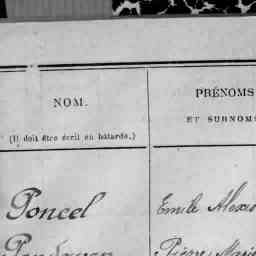 NOM.
(Il doit être écrit en bâtarde.)
PRÉNOMS
ET SURNOMS
Poncel
Emile Alexa
Pierre Marie